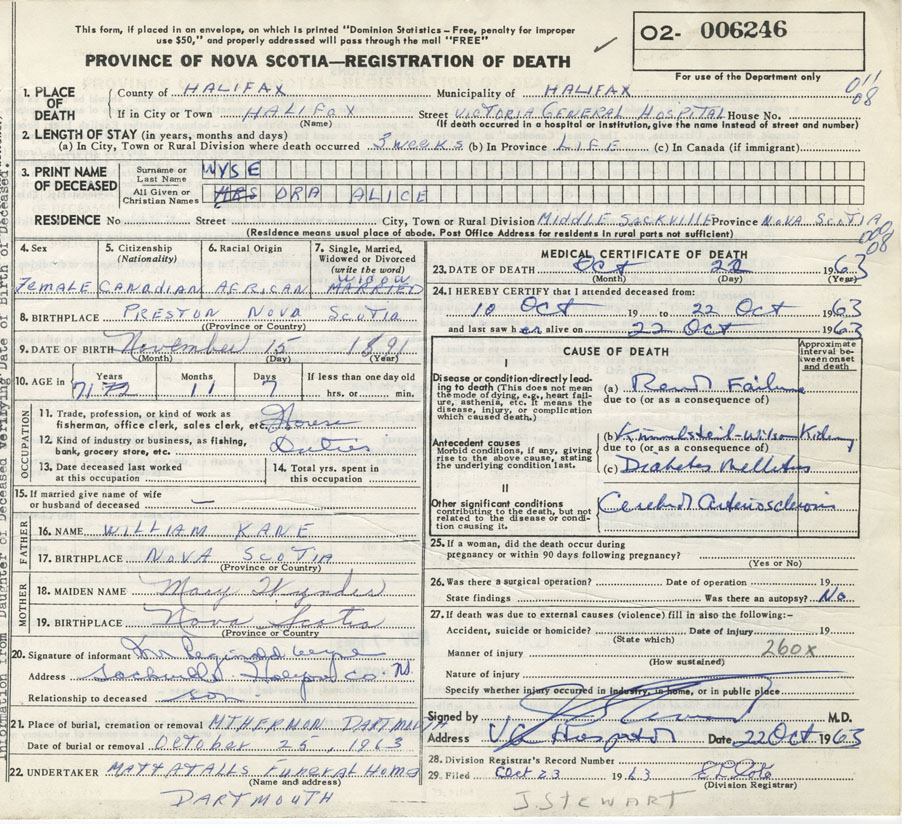 This form, if placed in an envelope, on which is printed "Dominion Statistics – Free, penalty for improper
use $50," and properly addressed will pass through the mail "FREE"
02- 006246
PROVINCE OF NOVA SCOTIA—REGISTRATION OF DEATH
For use of the Department only
011
08
1. PLACE OF DEATH
County of HALIFAX Municipality of HALIFAX
If in City or Town HALIFAX Street VICTORIA GENERAL HOSPITAL House No.
(Name) (If death occurred in a hospital or institution, give the name instead of street and number)
2. LENGTH OF STAY (in years, months and days)
(a) In City, Town or Rural Division where death occurred 3 weeks (b) In Province LIFE (c) In Canada (if immigrant)
3. PRINT NAME OF DECEASED
Surname or Last Name WYSE
All Given or Christian Names MRS ORA ALICE
RESIDENCE No Street City, Town or Rural Division MIDDLE SACKVILLE Province NOVA SCOTIA
(Residence means usual place of abode. Post Office Address for residents in rural parts not sufficient)
08
4. Sex
5. Citizenship (Nationality)
6. Racial Origin
7. Single, Married, Widowed or Divorced (write the word)
WIDOW
FEMALE CANADIAN AFRICAN MARRIED
8. BIRTHPLACE PRESTON NOVA SCOTIA
(Province or Country)
9. DATE OF BIRTH November 15 1891
(Month) (Day) (Year)
10. AGE in Years Months Days If less than one day old
71 72 11 7 hrs. or min.
OCCUPATION
11. Trade, profession, or kind of work as
fisherman, office clerk, sales clerk, etc. House
12. Kind of industry or business, as fishing,
bank, grocery store, etc. Duties
13. Date deceased last worked
at this occupation
14. Total yrs. spent in
this occupation
15. If married give name of wife
or husband of deceased —
FATHER
16. NAME WILLIAM KANE
17. BIRTHPLACE NOVA SCOTIA
(Province or Country)
MOTHER
18. MAIDEN NAME Mary Wynder
19. BIRTHPLACE Nova Scotia
(Province or Country)
20. Signature of informant Mr Reginald Wyse
Address Sackville Halifax Co. N.S.
Relationship to deceased son
21. Place of burial, cremation or removal MT HERMON DARTMOUTH
Date of burial or removal October 25, 1963
22. UNDERTAKER MATTATALLS FUNERAL HOME
(Name and address)
DARTMOUTH
MEDICAL CERTIFICATE OF DEATH
23. DATE OF DEATH Oct 22 1963
(Month) (Day) (Year)
24. I HEREBY CERTIFY that I attended deceased from:
10 Oct 19 to 22 Oct 1963
and last saw her alive on 22 Oct 1963
CAUSE OF DEATH
Approximate interval between onset and death
I
Disease or condition directly leading
to death (This does not mean
the mode of dying, e.g., heart failure,
asthenia, etc. It means the
disease, injury, or complication
which caused death.)
(a) Renal Failure
due to (or as a consequence of)
Antecedent causes
Morbid conditions, if any, giving
rise to the above cause, stating
the underlying condition last.
(b) Kimmelsteil-Wilson Kidney
due to (or as a consequence of)
(c) Diabetes Mellitus
II
Other significant conditions
contributing to the death, but not
related to the disease or condition
causing it.
Cerebral Arteriosclerosis
25. If a woman, did the death occur during
pregnancy or within 90 days following pregnancy?
(Yes or No)
26. Was there a surgical operation? Date of operation 19
State findings Was there an autopsy? No
27. If death was due to external causes (violence) fill in also the following:-
Accident, suicide or homicide? Date of injury 19
(State which)
Manner of injury 260x
(How sustained)
Nature of injury
Specify whether injury occurred in industry, in home, or in public place
Signed by M.D.
Address V.G. Hospital Date 22 Oct 1963
28. Division Registrar's Record Number
29. Filed Oct 23 1963
(Division Registrar)
J. STEWART
Information from Daughter of Deceased Verifying Date of Birth of Deceased.